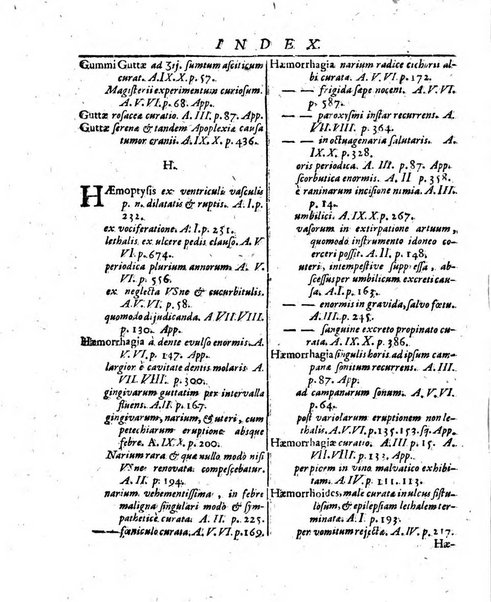 INDEX.
Gummi Guttæ ad ʒij. sumtum asciticum
curat. A. IX. X. p. 57.
Magisterii experimentum curiosum.
A. V. VI. p. 68. App.
Guttæ rosacea curatio. A. III. p. 87. App.
Guttæ serena & tandem Apoplexiæ causa
tumor cranii. A. IX. X. p. 436.
H.
HÆmoptysis ex ventriculi vasculis
p. n. dilatatis & ruptis. A. I. p.
232.
ex vociferatione. A. I. p. 231.
lethalis ex ulcere pedis clauso. A. V
VI. p. 674.
periodica plurium annorum. A. V.
VI. p. 556.
ex neglecta VSne & cucurbitulis.
A. V. VI. p. 58.
quomodo dijudicanda. A VII. VIII.
p. 130. App.
Hæmorrhagia à dente evulso enormis. A.
V. VI. p. 147. App.
largior è cavitate dentis molaris A.
VII. VIII. p. 300.
gingivarum guttatim per intervalla
fluens. A. II. p. 167.
gingivarum, narium, & uteri, cum
petechiarum eruptione absque
febre. A. IX. X. p. 200.
Narium rara & quæ nullo modò nisi
VSne renovata compescebatur.
A. II. p. 194.
narium vehementissima, in febre
maligna singulari modò & sym-
patheticè curata. A. II. p. 225.
—— fœniculo curata. A. V. VI. p. 169.
Hæmorrhagia narium radice cichorii al-
bi curata. A. V. VI. p. 172.
—— frigida sæpe nocent. A. V. VI.
p. 587.
—— paroxysmi instar recurrens. A.
VII. VIII. p. 364.
—— in octuagenaria salutaris. A.
IX. X. p. 328.
oris periodica. A. II. p. 87. App.
scorbutica enormis. A. II p. 358.
è raninarum incisione nimia. A. III.
p. 14.
umbilici. A. IX. X. p. 267.
vasorum in extirpatione artuum,
quomodo instrumento idoneo co
erceri possit. A. III. p. 220.
uteri, intempestivè suppressa, ab-
scessus per umbilicum excreti cau-
sa, A. I. p. 163.
—— enormis in gravida, salvo fœtu.
A. III. p. 245.
—— sanguine excreto propinato cu-
rata. A. IX. X. p. 386.
Hæmorrhagia singulis horis ad ipsum cam-
panæ sonitum recurrens. A. III.
p. 87. App.
ad campanarum sonum. A. V. VI.
p. 64.
post variolarum eruptionem non le-
thalis. A. V. VI. p. 135. 153. sq. App.
Hæmorrhagiæ curatio. A. III. p. 15. A.
VII. VIII. p. 133. App.
per picem in vino malvatico exhibi-
tam. A. IV. p. 111. 113.
Hæmorrhoides, male curatæ in ulcus fistu-
losum, & epilepsiam lethalem ter-
minata. A. I. p. 193.
per vomitum rejecta. A. IV. p. 217.
Hæ-